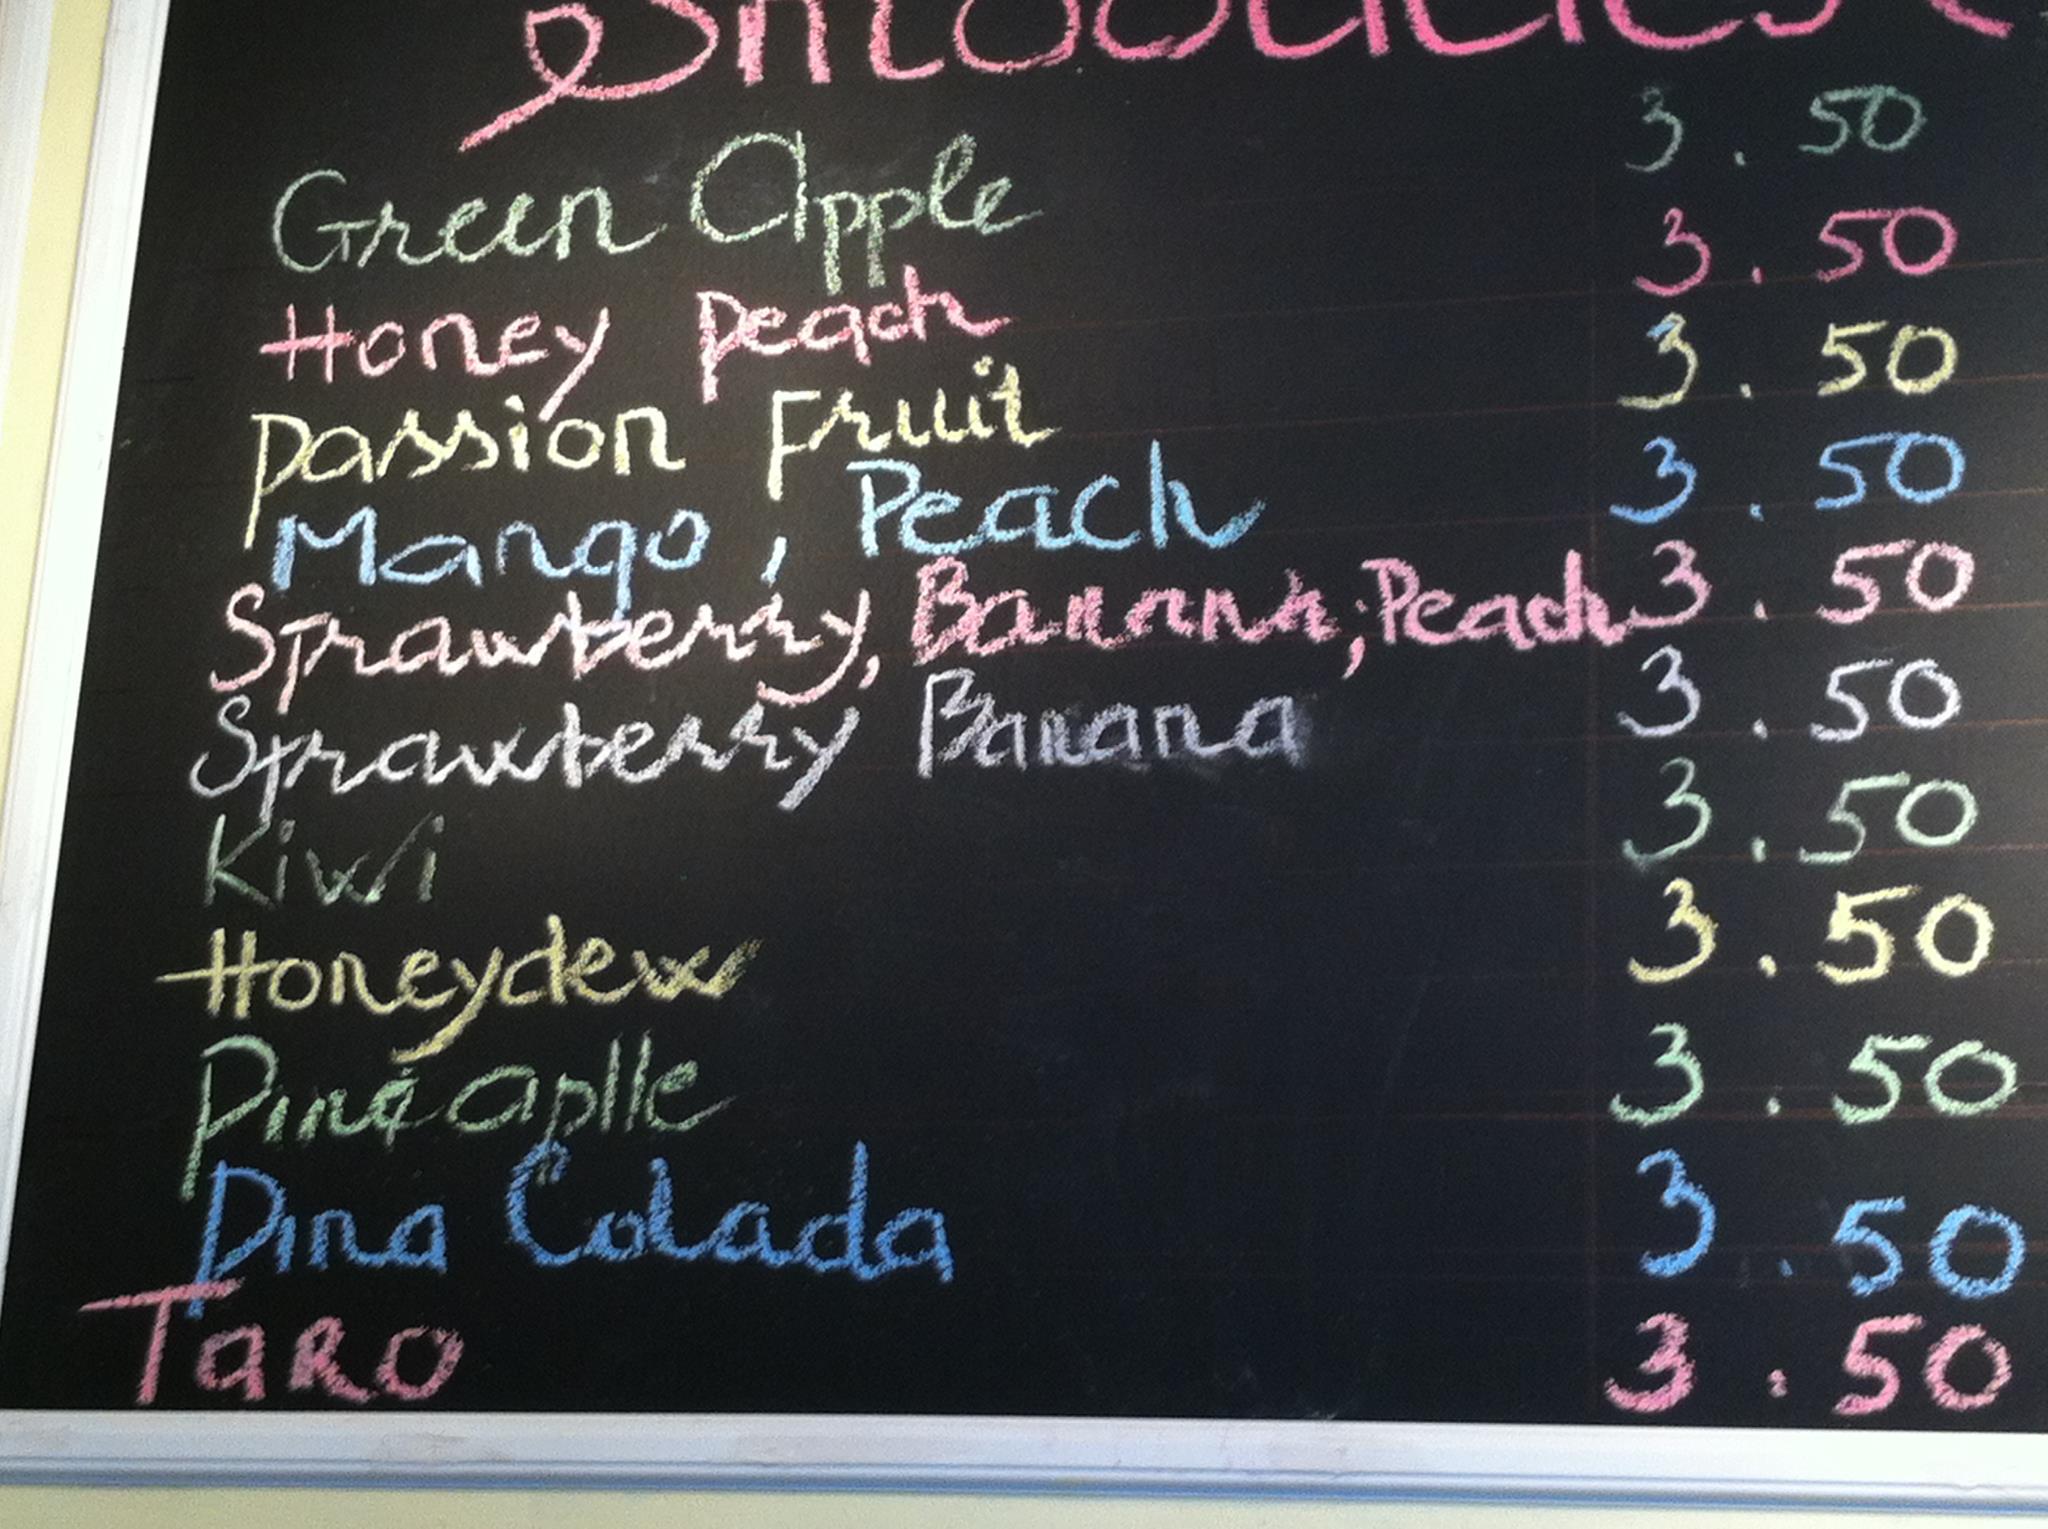 Smoothies
Green Apple 3.50
Honey Peach 3.50
Passion Fruit 3.50
Mango, Peach 3.50
Strawberry, Banana, Peach 3.50
Strawberry Banana 3.50
Kiwi 3.50
Honeydew 3.50
Pineaplle 3.50
Pina Colada 3.50
TaRO 3.50